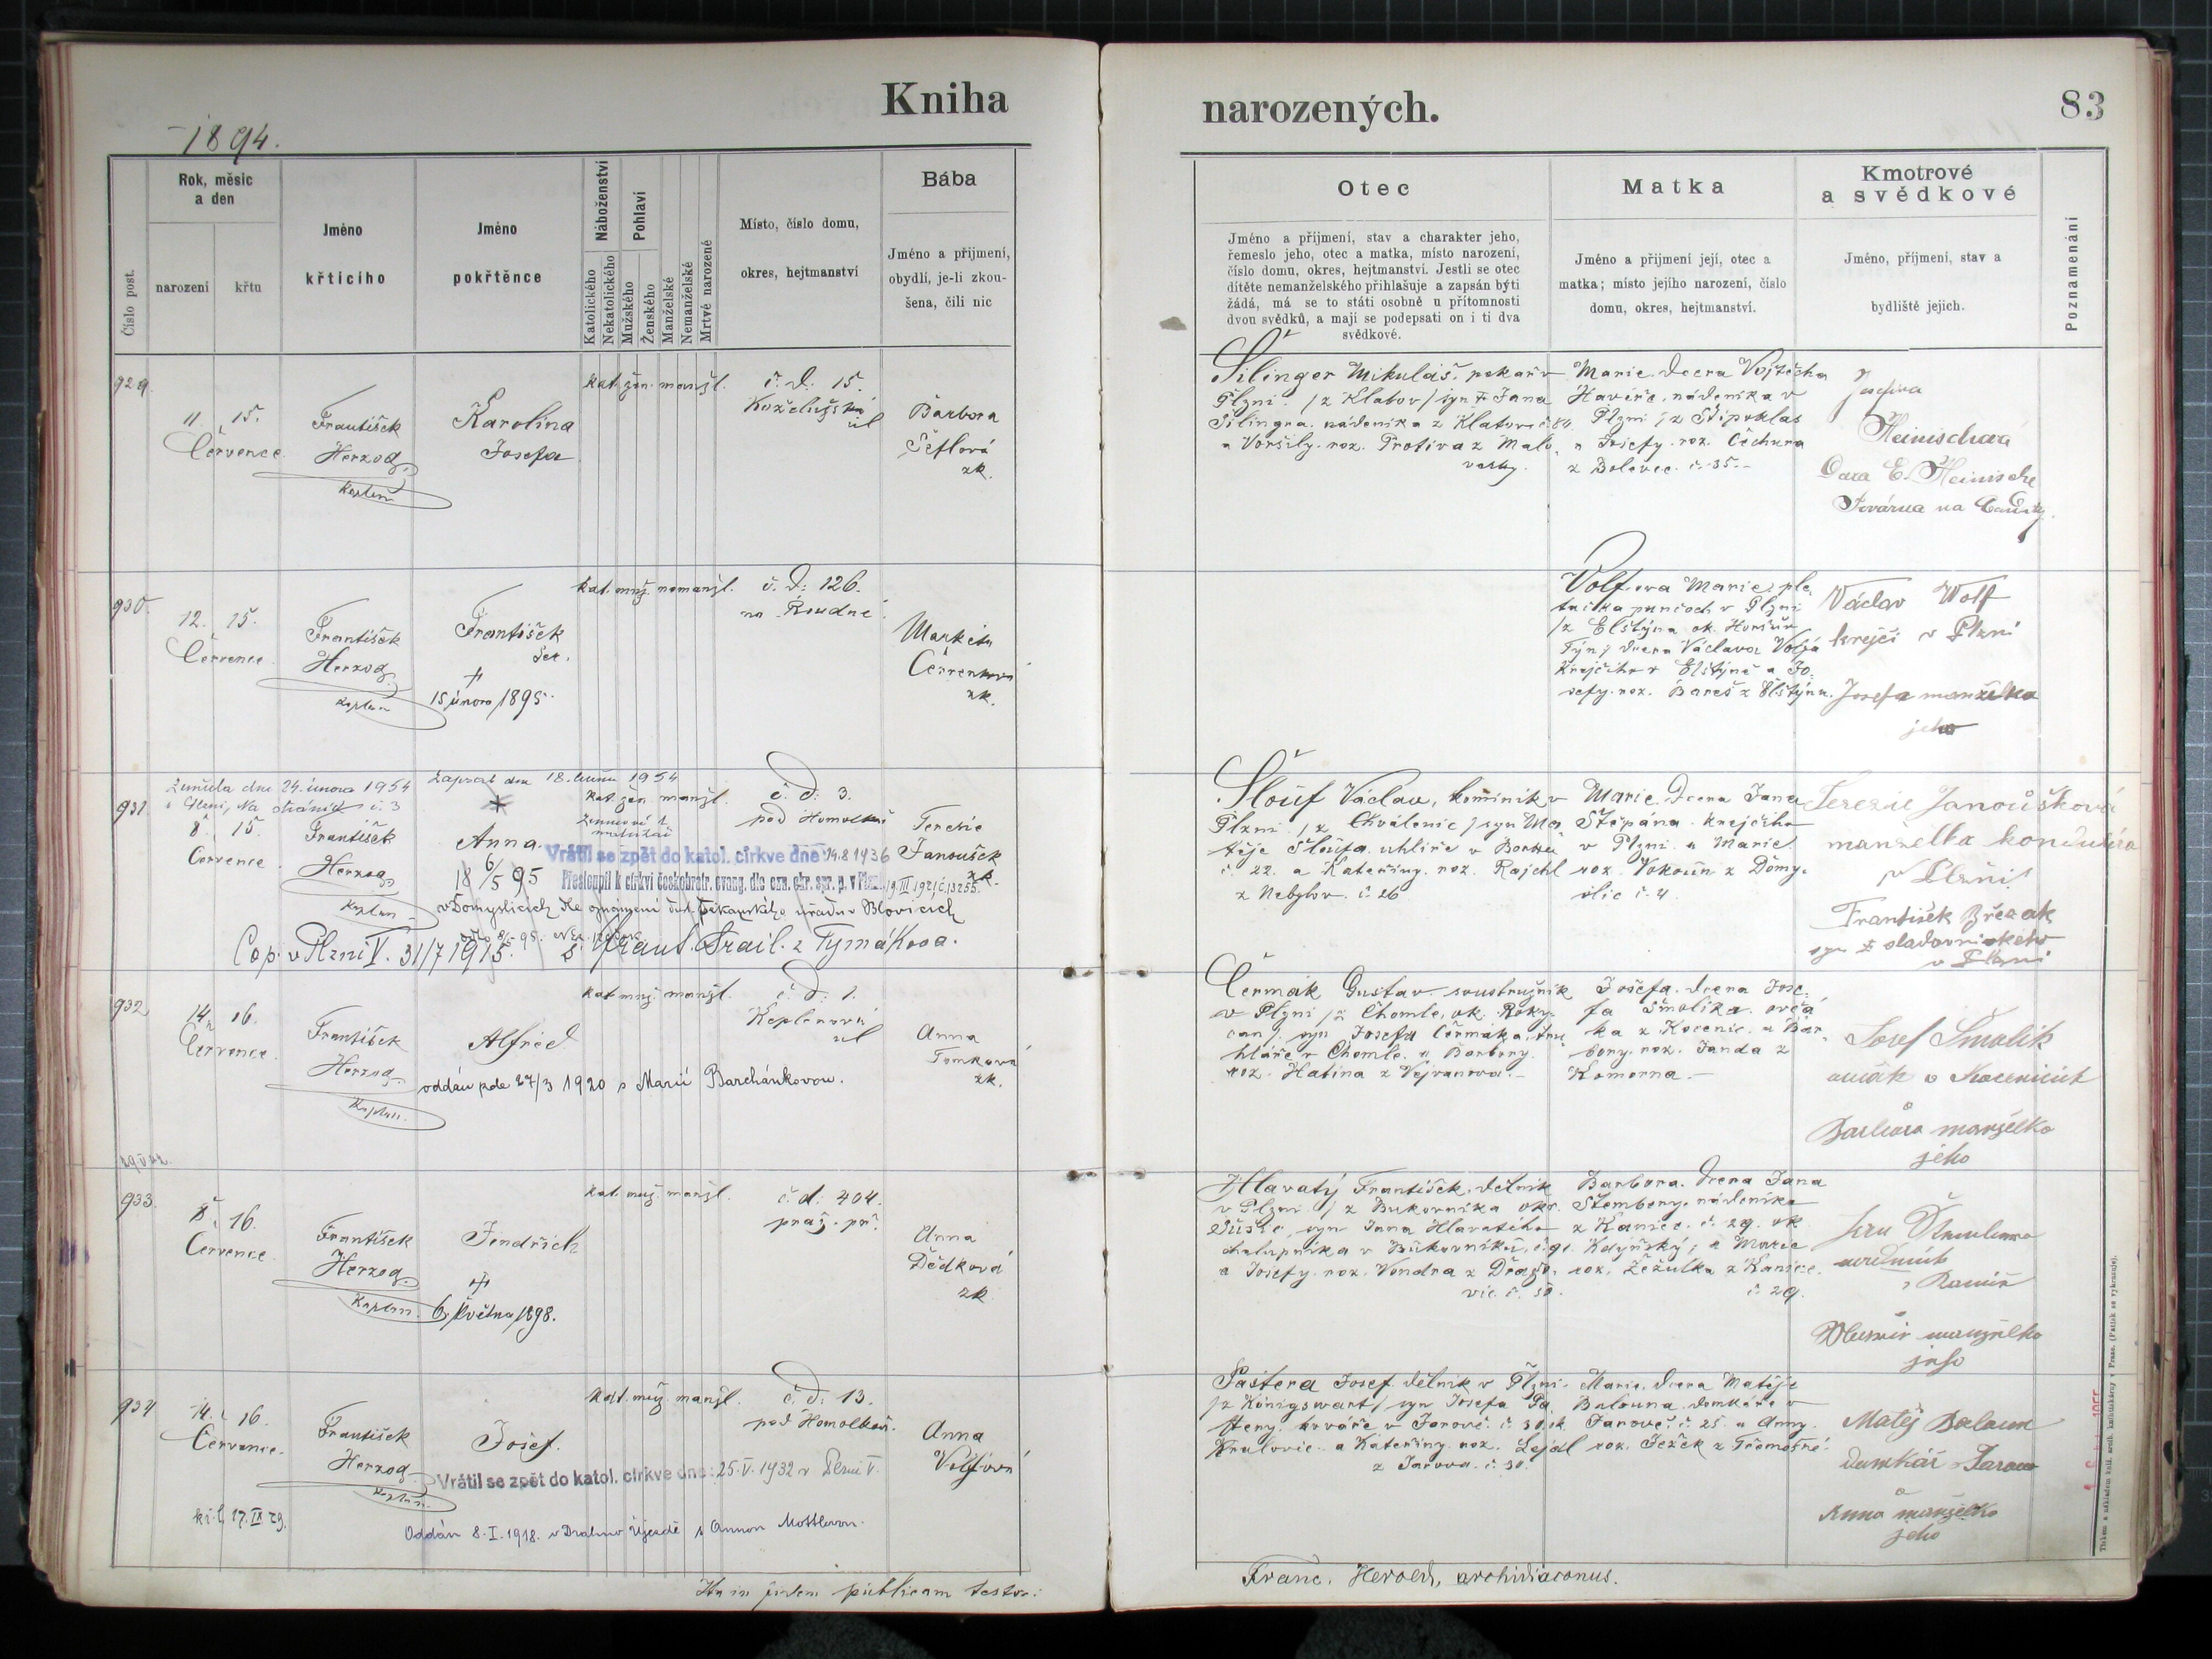 Kniha
narozených.
83
1894.
Číslo post.
Rok, měsíc
a den
narození
křtu
Jméno
křticího
Jméno
pokřtěnce
Náboženství
Katolického
Nekatolického
Pohlaví
Mužského
Ženského
Manželské
Nemanželské
Mrtvé narozené
Místo, číslo domu,
okres, hejtmanství
Bába
Jméno a příjmení,
obydlí, je-li zkou-
šena, čili nic
Otec
Jméno a příjmení, stav a charakter jeho,
řemeslo jeho, otec a matka, místo narození,
číslo domu, okres, hejtmanství. Jestli se otec
dítěte nemanželského přihlašuje a zapsán býti
žádá, má se to státi osobně u přítomnosti
dvou svědků, a mají se podepsati on i ti dva
svědkové.
Matka
Jméno a příjmení její, otec a
matka; místo jejího narození, číslo
domu, okres, hejtmanství.
Kmotrové
a svědkové
Jméno, příjmení, stav a
bydliště jejich.
Poznamenání
929.
11. 15.
Července
František
Herzog
kaplan
Karolina
Josefa
kat. žen. manžl.
č. d. 15.
Koželužská
ul
Barbora
Šéflová
zk.
Šilinger Mikuláš, pekař v
Plzni /z Klatov/ syn † Jana
Šilingra, nádeníka z Klatov č. 54
a Voršily roz. Protiva z Malo
vesky.
Marie, dcera Vojtěcha
Havíře, nádeníka v
Plzni /z Štipoklas
a Josefy roz. Čechura
z Bolevce č. 35.
Josefina
Heinischová
Továrna na
930.
12. 15.
Července
František
Herzog
kaplan
František
Ser.
†
15 února 1895.
kat. muž. nemanžl.
č. d. 126.
na Roudné
Marketa
Červenková
zk.
Volfova Marie, ple
tačka punčoch v Plzni
/z Elštýna ok. Horšův
Týn/ dcera Václava Volfa
krejčího v Elštýně a Jo
sefy roz. Bareš z Elštýna.
Václav Wolf
krejčí v Plzni
Josefa manželka
jeho
931
Zemřela dne 24. února 1954
v Plzni, Na stráních č. 3
Zapsal dne 18. 1954
8. 15.
Července
František
Herzog
kaplan
Anna
18 6/5 95
kat. žen. manžl.
č. d. 3.
pod Homolkou
Terezie
Janoušek
zk.
Vrátil se zpět do katol. církve dne 14.8 1936
Přestoupil k církvi českobratr. evang. dle ozn. okr. spr. p. v Plzni 19 III 1921 č. 13255.
v Domyslicích dle oznámení duch. úřadu v Blovicích
Cop. v Plzni V. 31/7 1915. s Frant. Srail. z Tymákova.
Slouf Václav, kominík v
Plzni /z Chválenic/ syn Ma
těje Sloufa, uhlíře v Borku
č 22. a Kateřiny roz. Rajchl
z Nebylov č. 26
Marie, dcera Jana
Štěpána krejčího
v Plzni a Marie
roz. Vokoun z Domy
slic č. 4.
Terezie Janoušková
manželka konduktéra
v Plzni
František Březák
syn sladovnického
v Plzni
932
14. 16.
Července
František
Herzog
Kaplan.
Alfréd
oddán zde 27/3 1920 s Marií Barchánkovou.
kat muž. manžl.
č. d. 1.
Keplerova
ul
Anna
Tomková
zk.
Čermák Gustav soustružník
v Plzni /z Chomle, ok. Roky-
can/, syn Josefa Čermáka, tru
hláře v Chomle a Barbory
roz. Hatina z Vejvanova.
Josefa, dcera Jose
fa Smolíka, ovčá
ka z Kocenic a Bar
bory roz. Janda z
Komorna.
Josef Smolík
ovčák v Kocenicích
Barbora manželka
jeho
933.
8. 16.
Července
František
Herzog
Kaplan.
Jindřich
†
6 května 1898.
kat. muž. manžl.
č. d. 404.
praž. př.
Anna
Dědková
zk
Hlavatý František, dělník
v Plzni /z Bukovníka okr.
Sušic, syn Jana Hlavatého
chalupníka v Bukovníku, č. 91.
a Josefy roz. Vondra z Dražo
vic č. 50.
Barbora, dcera Jana
Štembery, nádeníka
z Kanice č. 29. ok
Kdyňský, a Marie
roz. Žežulka z Kanice
č. 29.
manželka
jeho
934
14. 16.
Července.
František
Herzog
Kaplan.
Josef.
kat. muž. manžl.
č. d. 13.
pod Homolkou.
Anna
Volfová
Vrátil se zpět do katol. církve dne: 25.V.1932 v Plzni V.
kř. l. 17.IX 29.
Oddán 8.I.1918. v Drahno Újezdě s Annou Mottlovou.
Pastera Josef, dělník v Plzni
/z Königswart/ syn Josefa Pa
stery, kováře v Jarově č. 30 ok
Kralovic a Kateřiny roz. Lejdl
z Jarova č. 30.
Marie, dcera Matěje
Balouna, domkáře v
Jarově č. 25. a Anny
roz. Ježek z Třemošné.
Matěj Baloun
domkář Jarov
Anna manželka
jeho
In fidem publicam testor:
Franc. Herold, archidiaconus.